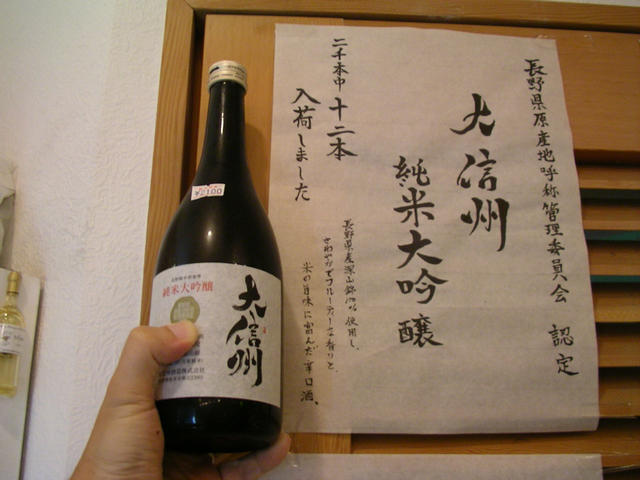 長野県原産地呼称管理委員会 認定
大信州
純米大吟醸
長野県産深山錦100%使用し、
さわやかでフルーティーな香りと、
米の旨味に富んだ辛口酒。
二千本中 十二本
入荷しました
¥2100
大信州
純米大吟醸